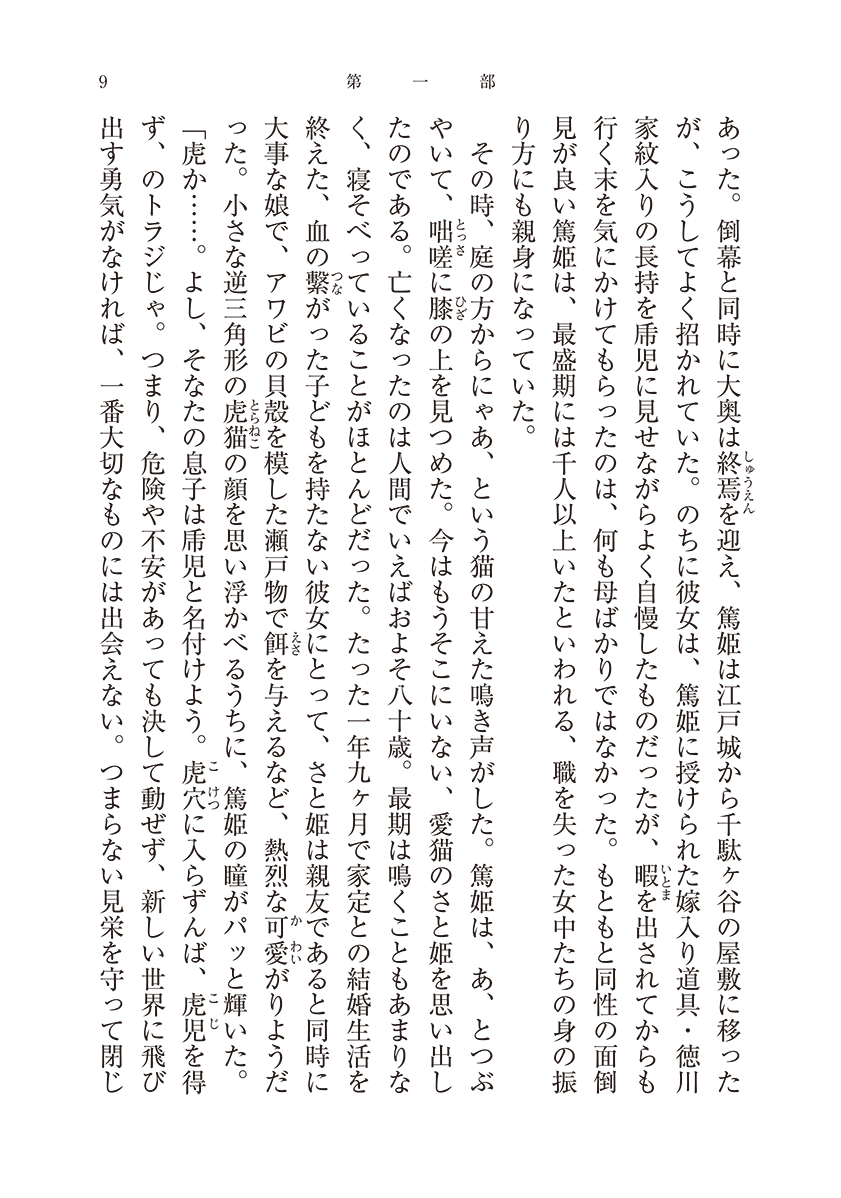 9
第一部
しゅうえん
あった。倒幕と同時に大奥は終焉を迎え、篤姫は江戸城から千駄ヶ谷の屋敷に移った
が、こうしてよく招かれていた。のちに彼女は、篤姫に授けられた嫁入り道具・徳川
いとま
家紋入りの長持を乕児に見せながらよく自慢したものだったが、暇を出されてからも
行く末を気にかけてもらったのは、何も母ばかりではなかった。もともと同性の面倒
見が良い篤姫は、最盛期には千人以上いたといわれる、職を失った女中たちの身の振
り方にも親身になっていた。
その時、庭の方からにゃあ、という猫の甘えた鳴き声がした。篤姫は、あ、とつぶ
とっさ ひざ
やいて、咄嗟に膝の上を見つめた。今はもうそこにいない、愛猫のさと姫を思い出し
たのである。亡くなったのは人間でいえばおよそ八十歳。最期は鳴くこともあまりな
く、寝そべっていることがほとんどだった。たった一年九ヶ月で家定との結婚生活を
つな
終えた、血の繫がった子どもを持たない彼女にとって、さと姫は親友であると同時に
えさ かわい
大事な娘で、アワビの貝殻を模した瀬戸物で餌を与えるなど、熱烈な可愛がりようだ
とらねこ
った。小さな逆三角形の虎猫の顔を思い浮かべるうちに、篤姫の瞳がパッと輝いた。
こけつ こじ
「虎か……。よし、そなたの息子は乕児と名付けよう。虎穴に入らずんば、虎児を得
ず、のトラジじゃ。つまり、危険や不安があっても決して動ぜず、新しい世界に飛び
出す勇気がなければ、一番大切なものには出会えない。つまらない見栄を守って閉じ